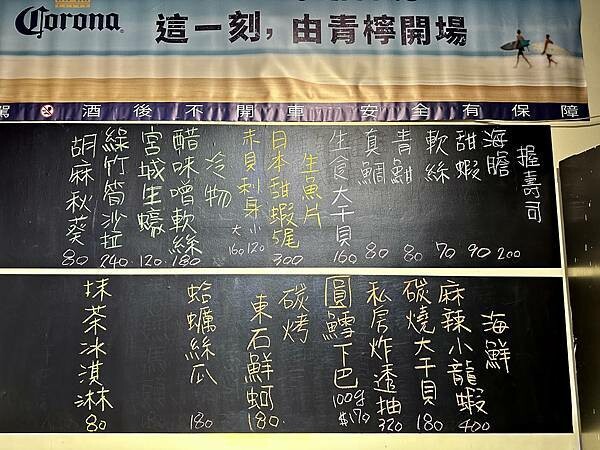 Corona
這一刻, 由青檸開場
駕 酒後不開車 安全有保障
握壽司
海膽 200
甜蝦 90
軟絲 70
青魽 80
真鯛 80
生食大干貝 160
生魚片
日本甜蝦5尾 300
赤貝刺身 小120 大160
冷物
醋味噌軟絲 180
宮城生蠔 120
綠竹筍沙拉 240
胡麻秋葵 80
海鮮
麻辣小龍蝦 400
碳燒大干貝 180
私房炸透抽 320
圓鱈下巴 100g $170
碳烤
東石鮮蚵 180
蛤蠣絲瓜 180
抹茶冰淇淋 80